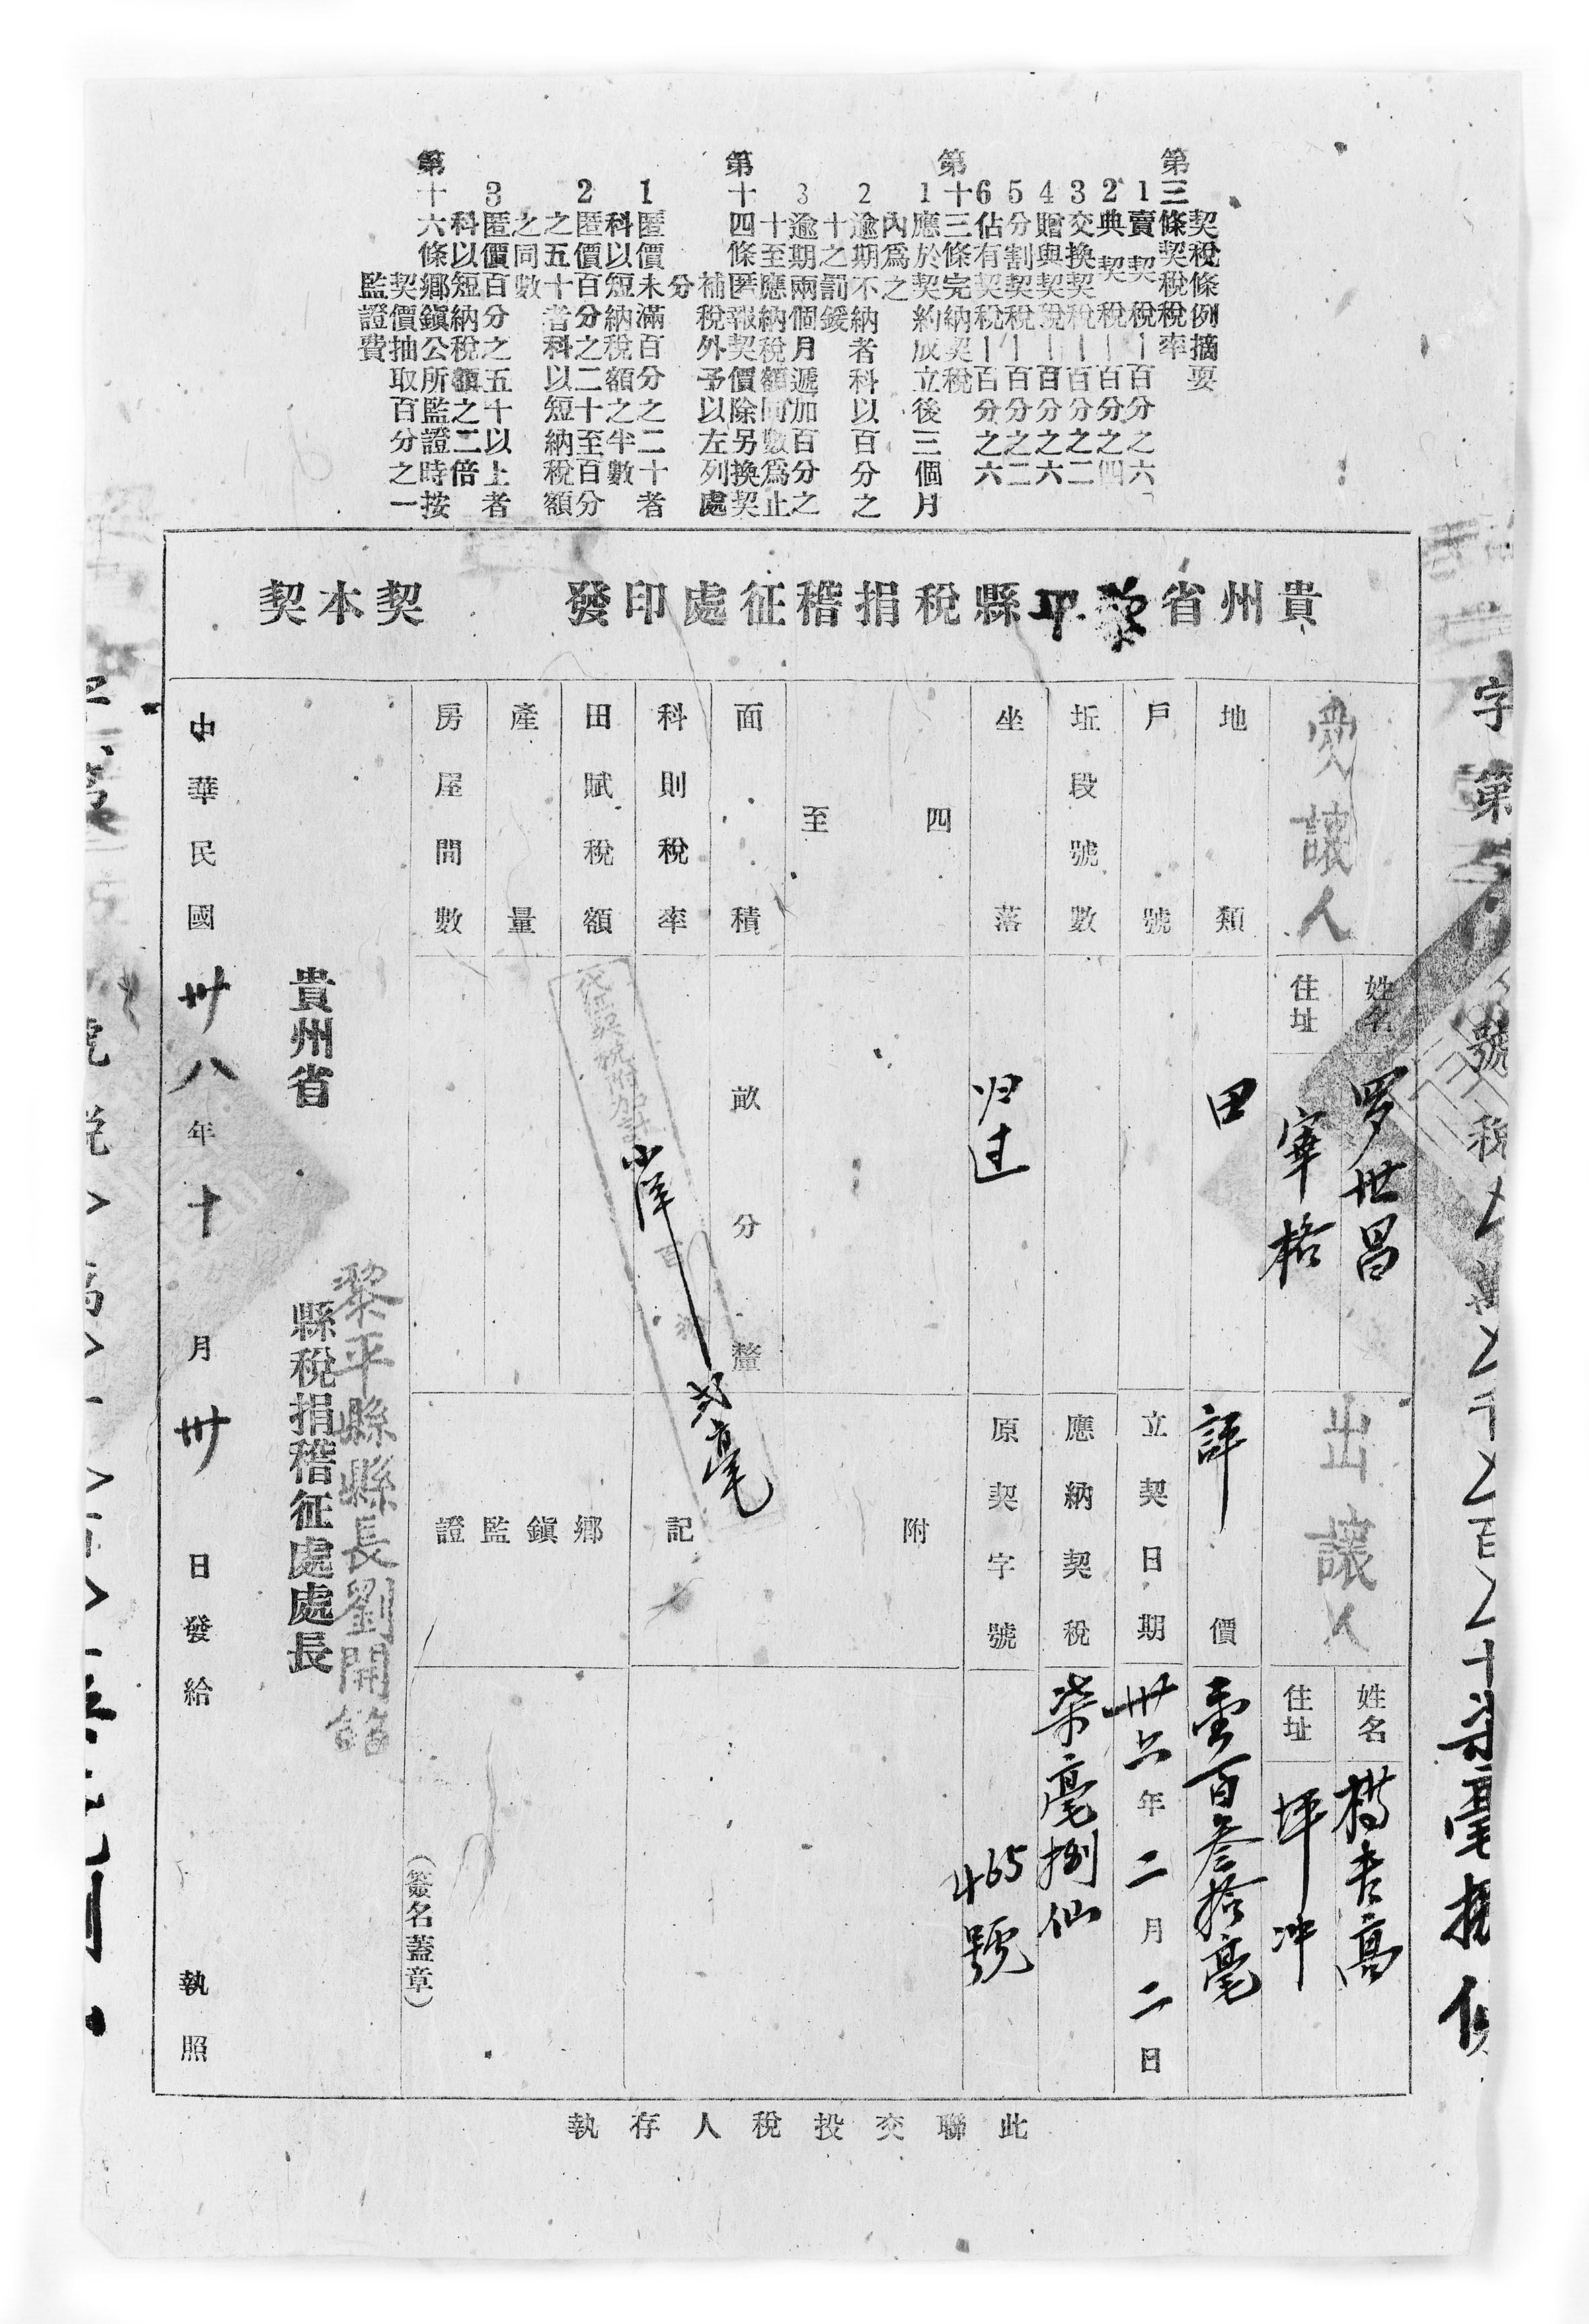 契稅條例摘要
第三條契稅稅率
1賣契稅—百分之六
2典契稅—百分之四
3交換契稅—百分之二
4贈與契稅—百分之六
5分割契稅—百分之二
6佔有契稅—百分之六
第十三條完納契稅
1應於契約成立後三個月
內為之
2逾期不納者科以百分之
十之罰鍰
3逾期兩個月遞加百分之
十至應納稅額同數為止
第十四條匿報契價除另換契
補稅外予以左列處
分
1匿價未滿百分之二十者
科以短納稅額之半數
2匿價百分之二十至百分
之五十者科以短納稅額
之同數
3匿價百分之五十以上者
科以短納稅額之二倍
第十六條鄉鎮公所監證時按
契價抽取百分之一
監證費
貴州省黎平縣稅捐稽征處印發 契本契
字第 號稅 萬 千 百 十柒毫捌仙
受讓人
姓名 罗世昌
住址 寨格
出讓人
姓名 楊吉高
住址 坪冲
地類 田
評價 壹百叁拾毫
戶號
立契日期 卅六年二月二日
坵段號數
應納契稅 柒毫捌仙
坐落 归
原契字號 465號
四至
附記
面積 畝 分 釐
科則稅率
代征契稅附加
小洋 毫
田賦稅額
產量
房屋間數
鄉鎮監證
(簽名蓋章)
黎平縣縣長劉開
貴州省 縣稅捐稽征處處長
中華民國卅八年十月卅日發給 執照
此聯交投稅人存執